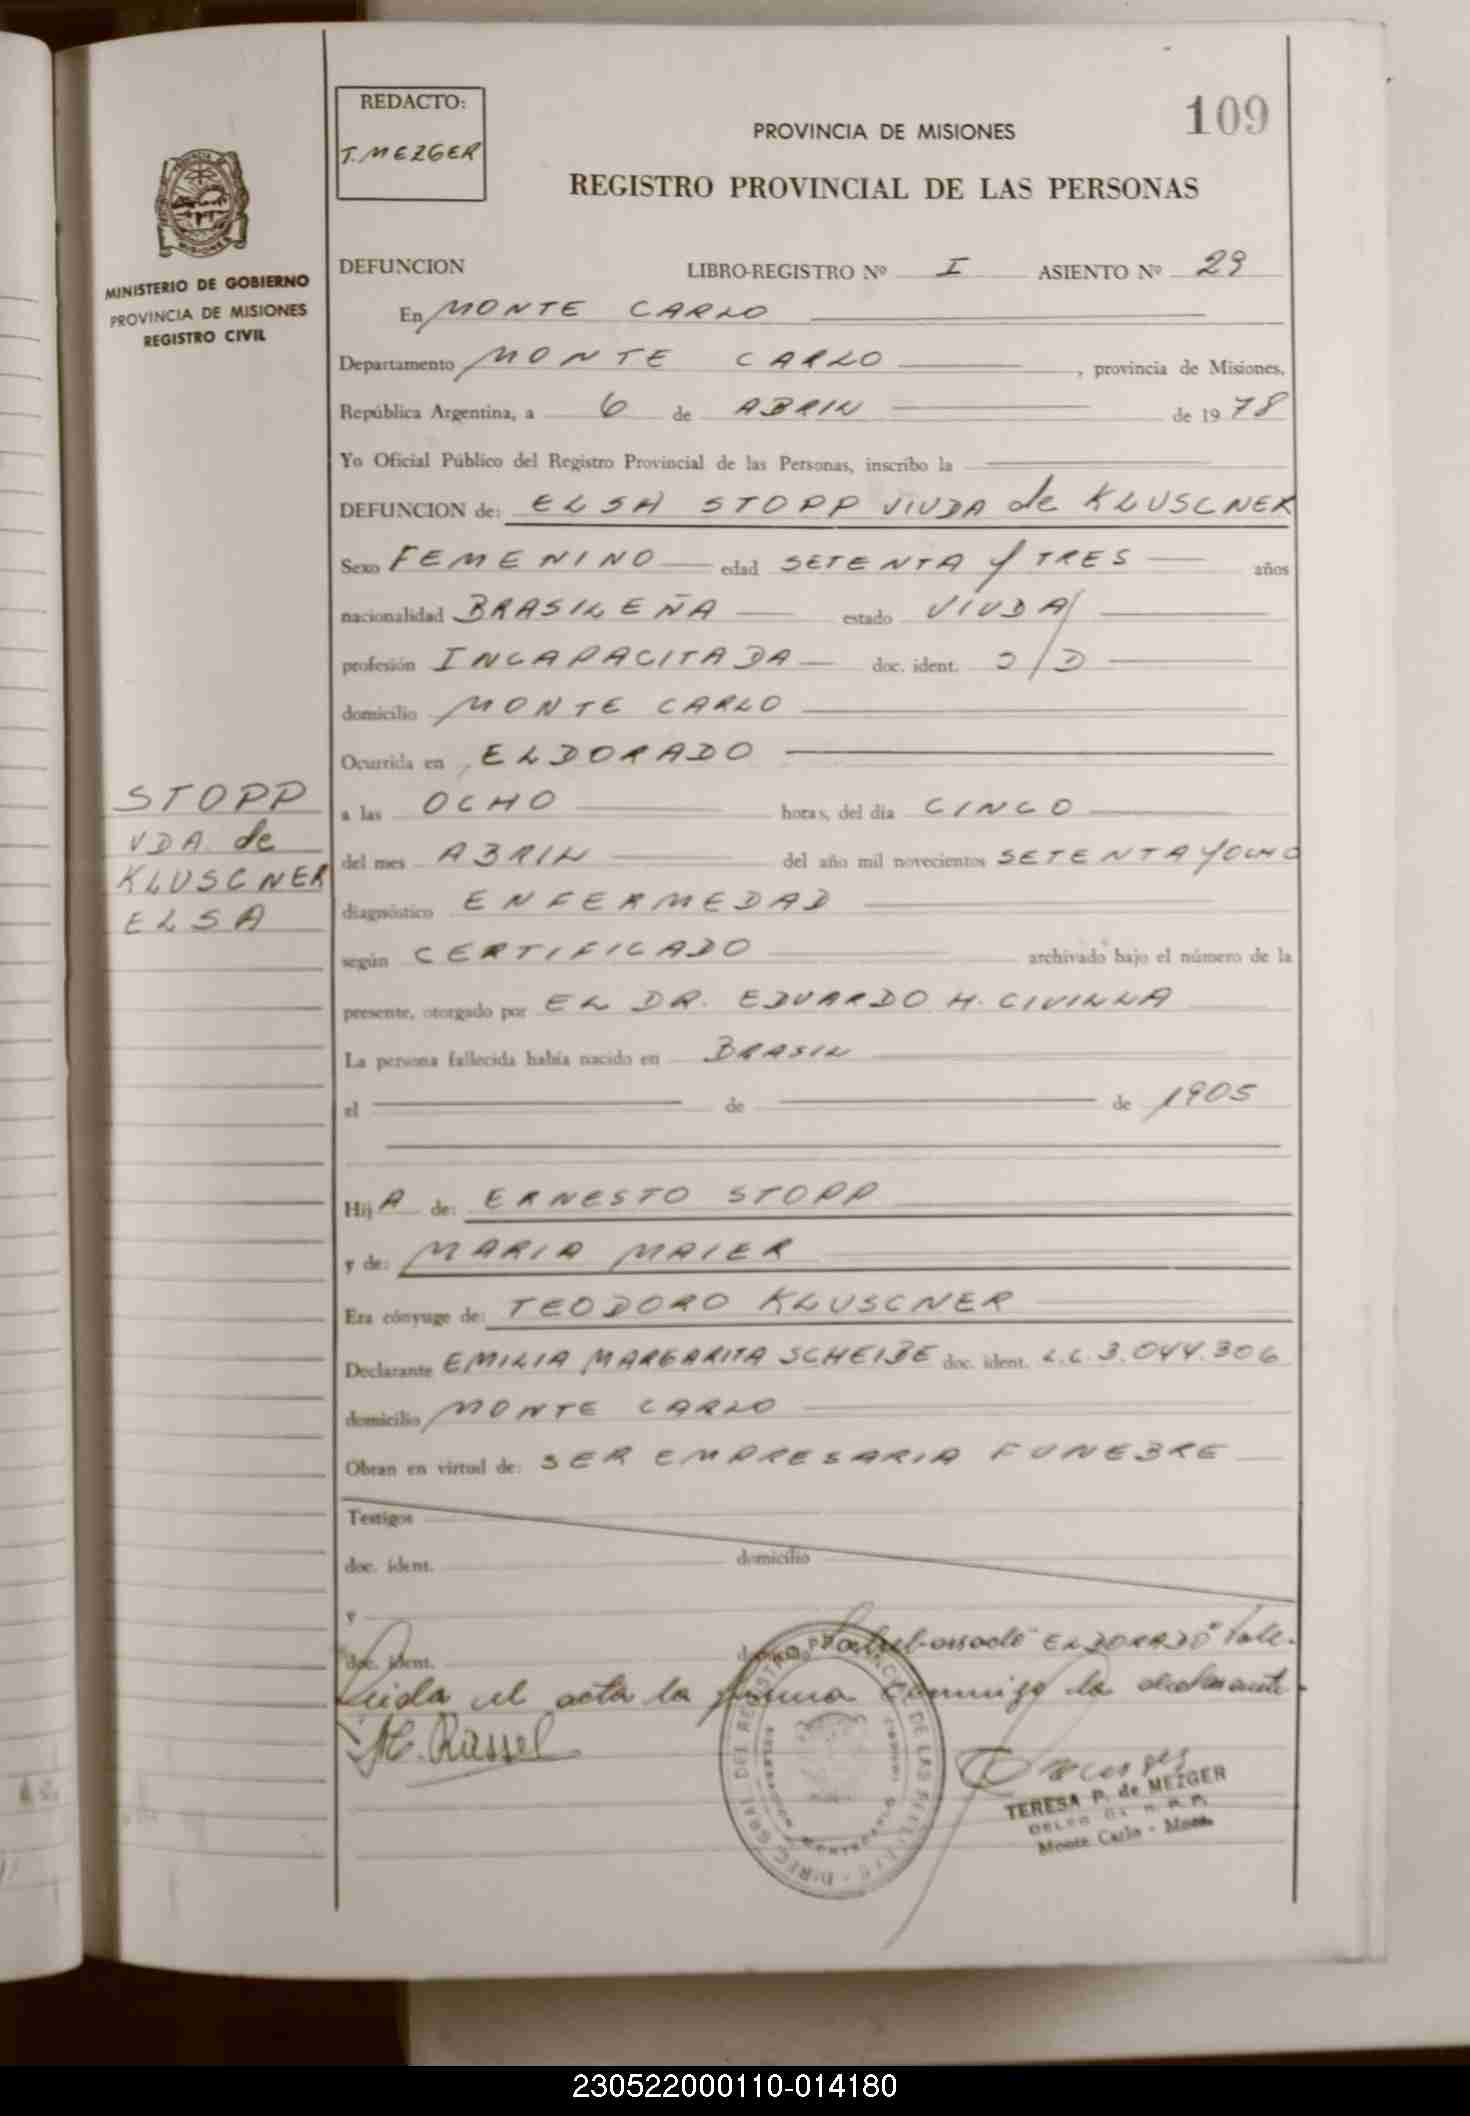 109
REDACTO:
T. MEZGER
PROVINCIA DE MISIONES
REGISTRO PROVINCIAL DE LAS PERSONAS
MINISTERIO DE GOBIERNO
PROVINCIA DE MISIONES
REGISTRO CIVIL
DEFUNCION LIBRO-REGISTRO Nº I ASIENTO Nº 29
En MONTE CARLO
Departamento MONTE CARLO, provincia de Misiones,
República Argentina, a 6 de ABRIL de 1978
Yo Oficial Público del Registro Provincial de las Personas, inscribo la
DEFUNCION de: ELSA STOPP VIUDA de KLUSCNER
Sexo FEMENINO edad SETENTA Y TRES años
nacionalidad BRASILEÑA estado VIUDA
profesión INCAPACITADA doc. ident. S/D
domicilio MONTE CARLO
Ocurrida en ELDORADO
a las OCHO horas, del día CINCO
del mes ABRIL del año mil novecientos SETENTA Y OCHO
diagnóstico ENFERMEDAD
según CERTIFICADO archivado bajo el número de la
presente, otorgado por EL DR. EDUARDO H. CIVILLA
La persona fallecida había nacido en BRASIL
el de de 1905
Hij A de: ERNESTO STOPP
y de: MARIA MAIER
Era cónyuge de: TEODORO KLUSCNER
Declarante EMILIA MARGARITA SCHEIBE doc. ident. L.C. 3.044.306
domicilio MONTE CARLO
Obran en virtud de: SER EMPRESARIA FUNEBRE
Testigos
doc. ident. domicilio
y
doc. ident. "ELDORADO" Vale.
Leida el acta la firma conmigo la declarante.
STOPP
VDA. de
KLUSCNER
ELSA
M. Rassel
TERESA P. de MEZGER
Monte Carlo - Mnes.
230522000110-014180